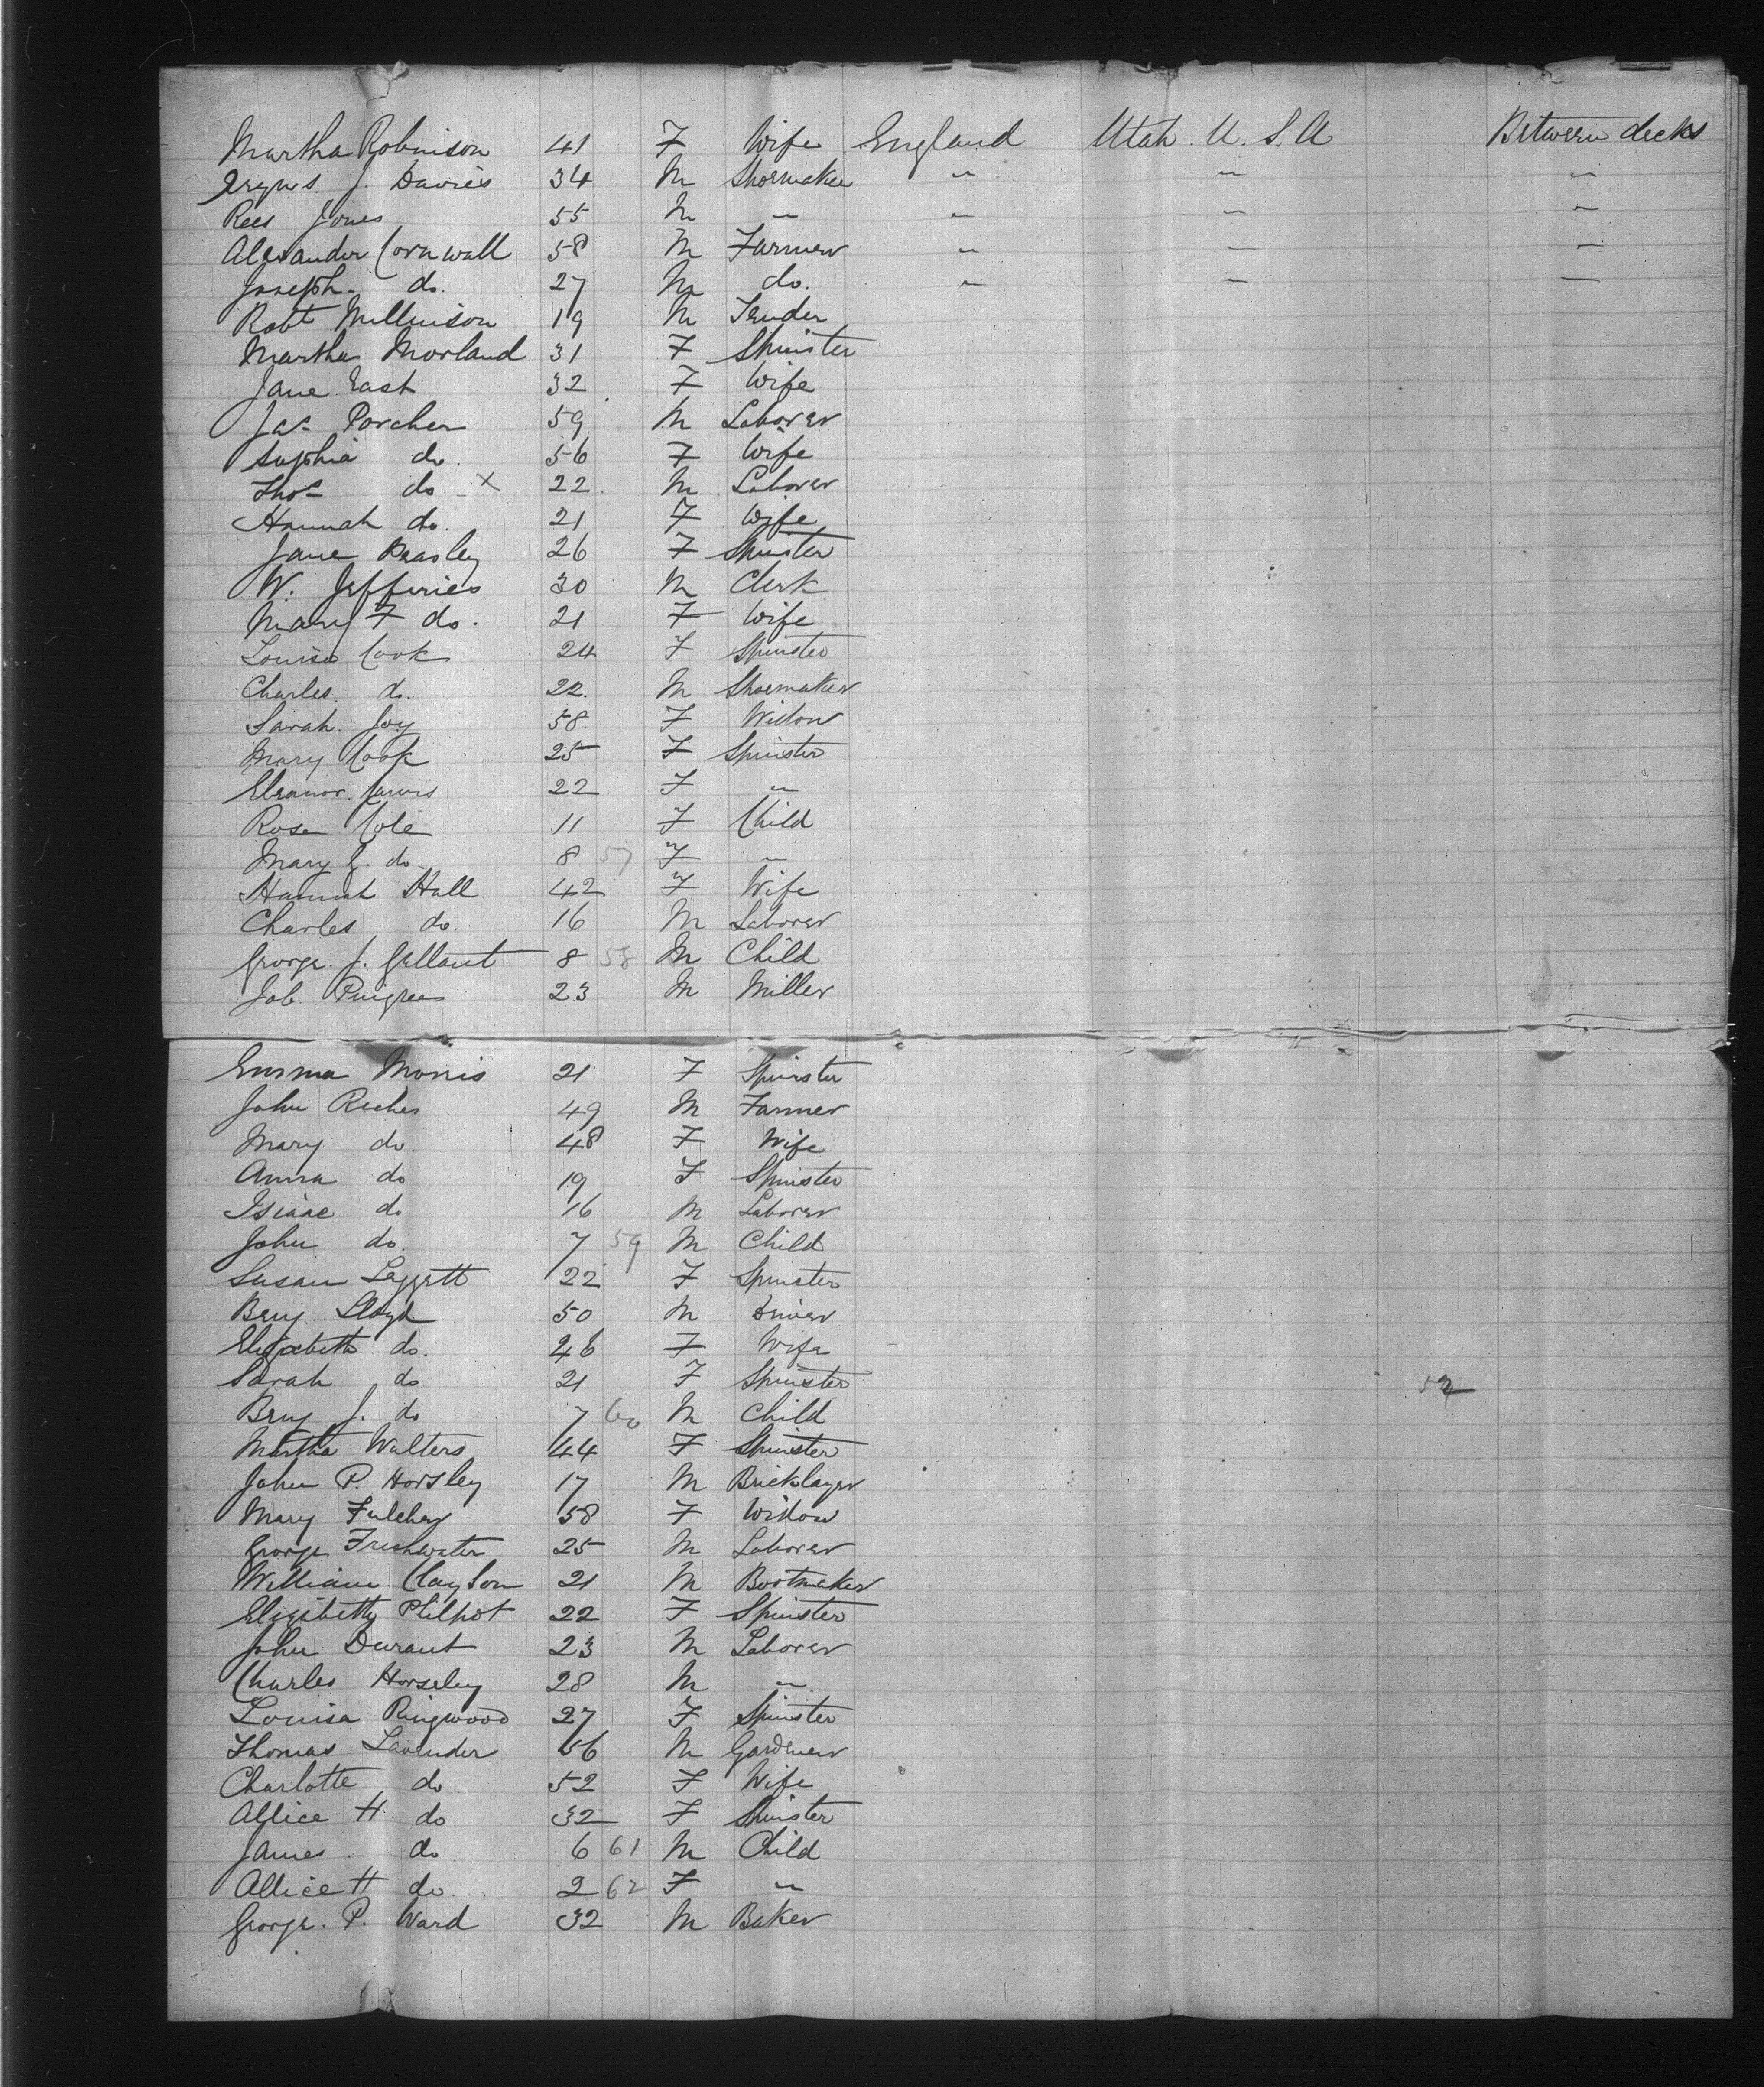 Martha Robinson 41 F Wife England Utah. U. S. A Between decks
J. Davies 34 M Shoemaker " " "
Rees Jones 55 M " " " "
Alexander Cornwall 58 M Farmer " — —
Joseph do. 27 M do. " — —
Robt Mellinson 19 M
Martha Morland 31 F Spinster
Jane East 32 F Wife
Jas Porcher 59 M Laborer
Sophia do. 56 F Wife
Thos do X 22 M Laborer
Hannah do. 21 F Wife
Jane Beasley 26 F Spinster
W. Jefferies 30 M Clerk
Mary F do. 21 F Wife
Louisa Cook 24 F Spinster
Charles do. 22 M Shoemaker
Sarah Joy 58 F Widow
Mary Cook 25 F Spinster
Eleanor Jarvis 22 F "
Rose Cole 11 F Child
Mary J. do 8 57 F "
Hannah Hall 42 F Wife
Charles do. 16 M Laborer
George. J. Gallant 8 58 M Child
Job. Pingree 23 M Miller
Emma Morris 21 F Spinster
John Riches 49 M Farmer
Mary do. 48 F Wife
Anna do 19 F Spinster
Isiaac do 16 M Laborer
John do. 7 59 M Child
Susan Leggett 22 F Spinster
Benj Lloyd 50 M
Elizabeth do. 46 F Wife
Sarah do 21 F Spinster 52
Benj J. do 7 60 M Child
Martha Walters 44 F Spinster
John P. Horsley 17 M Bricklayer
Mary Fulcher 58 F Widow
George Freshwater 25 M Laborer
William Clayson 21 M Bootmaker
Philpot 22 F Spinster
John Durant 23 M Laborer
Charles Horseley 28 M "
Louisa Ringwood 27 F Spinster
Thomas Lavender 56 M Gardener
Charlotte do 52 F Wife
Allice H do 32 F Spinster
James do 6 61 M Child
Allice H do. 2 62 F "
George. P. Ward 32 M Baker